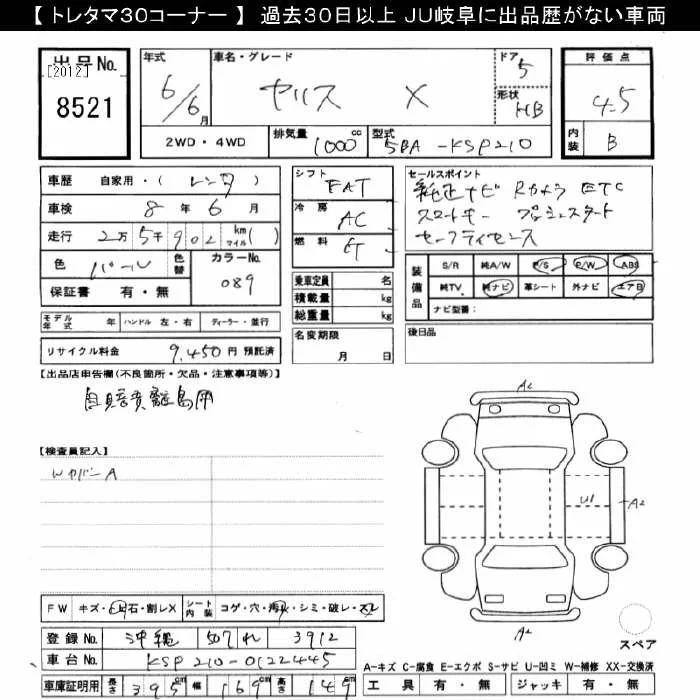 【 トレタマ30コーナー 】 過去30日以上 JU岐阜に出品歴がない車両
出品No. 年式 車名・グレード ドア 5 評価点
[2012] 8521 6/6月 ヤリス X 形状 HB 4.5
2WD・4WD 排気量 1000 cc 型式 5BA-KSP210 内装 B
車歴 自家用・( レンタ ) シフト FAT セールスポイント
車検 8 年 6 月 冷房 AC 純正ナビ Rカメラ ETC
走行 2万 5千 902 km マイル ( ) 燃料 スマートキー プッシュスタート
セーフティセンス
色 パール 色替 カラーNo. 089 乗車定員 名 装備品 S/R 純A/W P/S P/W ABS
保証書 有・無 積載量 kg 純TV 純ナビ 革シート 外ナビ エアB
総重量 kg ナビ型番:
モデル年式 年 ハンドル 左・右 ディーラー・並行 名変期限 月 日 後日品
リサイクル料金 9,450 円 預託済
【出品店申告欄(不良箇所・欠品・注意事項等)】
自賠責離島用
【検査員記入】
Wカバー A
A2
U1
A2
A2
FW キズ・飛石・割レX シート内装 コゲ・穴・汚れ・シミ・破レ・スレ
登録No. 沖縄 507 れ 3912 スペア
車台No. KSP210-0122445 A-キズ C-腐食 E-エクボ S-サビ U-凹ミ W-補修 XX-交換済
車庫証明用 長さ 395 cm 幅 169 cm 高さ 149 cm 工具 有・無 ジャッキ 有・無